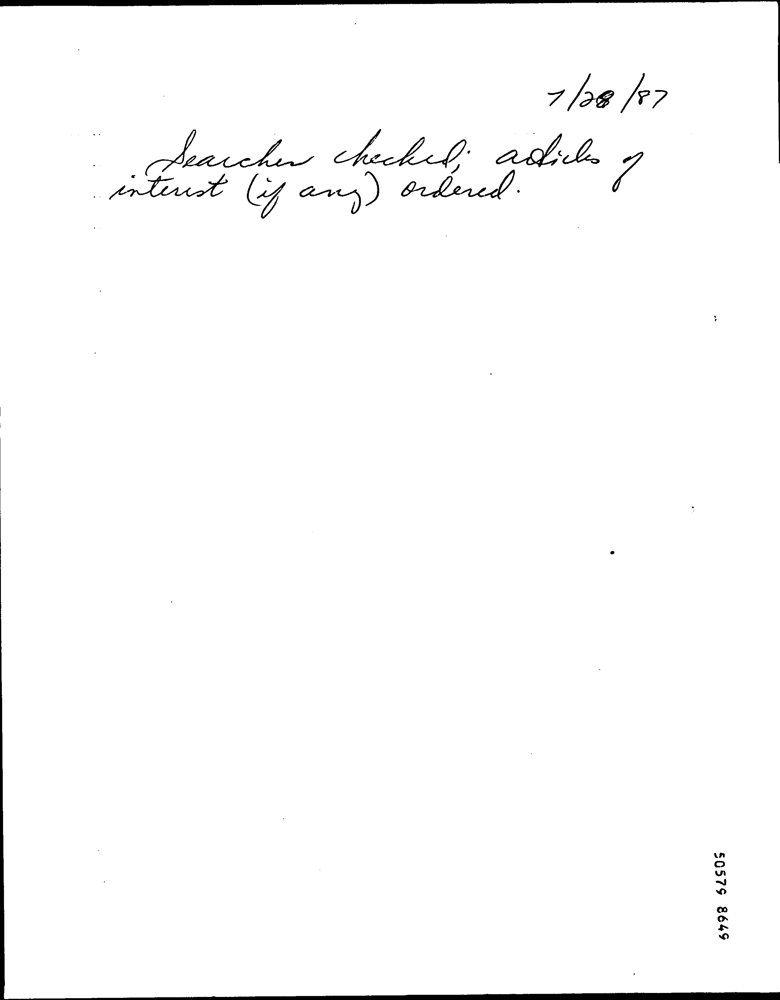 7/28/87
Searches checked; articles of
interest (if any) ordered.
50579 8649